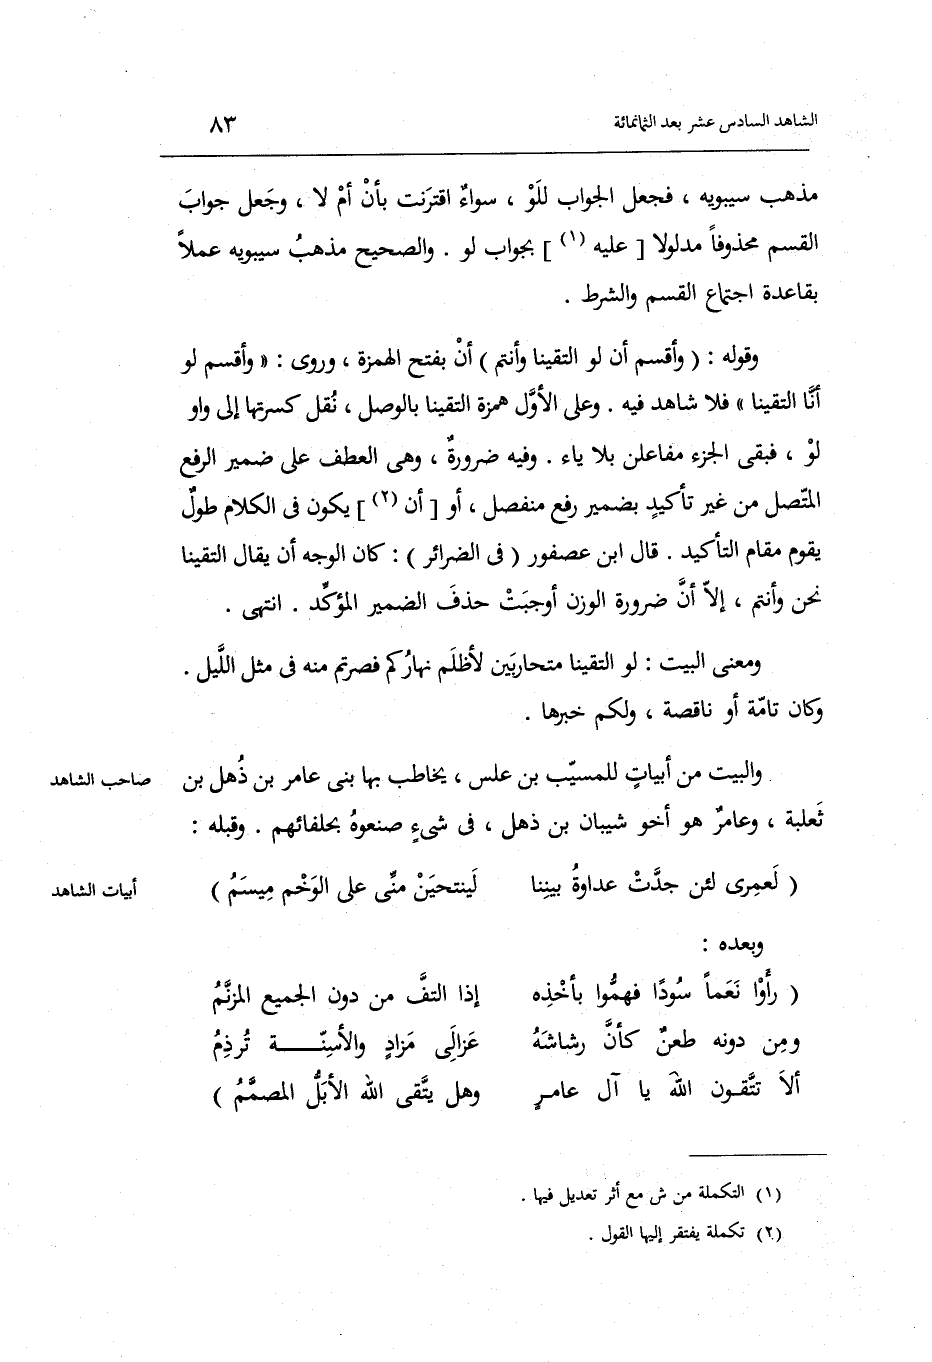 الشاهد السادس عشر بعد الثمانمائة ٨٣
مذهب سيبويه ، فجعل الجواب للَوْ ، سواءٌ اقترَنت بأنْ أمْ لا ، وجَعل جوابَ
القسم محذوفاً مدلولا [ عليه (١) ] بجواب لو . والصحيح مذهبُ سيبويه عملاً
بقاعدة اجتماع القسم والشرط .
وقوله : ( وأقسم أن لو التقينا وأنتم ) أنْ بفتح الهمزة ، وروى : « وأقسم لو
أنَّا التقينا » فلا شاهد فيه . وعلى الأوَّل همزة التقينا بالوصل ، نُقل كسرتها إلى واو
لوْ ، فبقى الجزء مفاعلن بلا ياء . وفيه ضرورةٌ ، وهى العطف على ضمير الرفع
المتّصل من غير تأكيدٍ بضمير رفع منفصل ، أو [ أن (٢) ] يكون فى الكلام طولٌ
يقوم مقام التأكيد . قال ابن عصفور ( فى الضرائر ) : كان الوجه أن يقال التقينا
نحن وأنتم ، إلاّ أنَّ ضرورة الوزن أوجبَتْ حذفَ الضمير المؤكِّد . انتهى .
ومعنى البيت : لو التقينا متحاربَين لأظلَم نهارُكم فصرتم منه فى مثل اللَّيل .
وكان تامّة أو ناقصة ، ولكم خبرها .
والبيت من أبياتٍ للمسيّب بن علس ، يخاطب بها بنى عامر بن ذُهل بن
صاحب الشاهد
ثَعلبة ، وعامرٌ هو أخو شيبان بن ذهل ، فى شىءٍ صنعوهُ بحلفائهم . وقبله :
( لَعمِرى لئن جدَّتْ عداوةُ بينِنا لَينتحيَنْ منِّى على الوَخْم مِيسَمُ )
أبيات الشاهد
وبعده :
( رأَوْا نَعَماً سُودًا فهمُّوا بأخْذِه إذا التفَّ من دون الجميع المزنَّمُ
ومِن دونه طعنٌ كأنَّ رشاشَهُ عَزالَى مَزادٍ والأسِنّــــة تُرذِمُ
ألاَ تتَّقـون اللهَ يا آل عامـرٍ وهل يتَّقى الله الأبَلُّ المصمَّمُ )
(١) التكملة من ش مع أثر تعديل فيها .
(٢) تكملة يفتقر إليها القول .